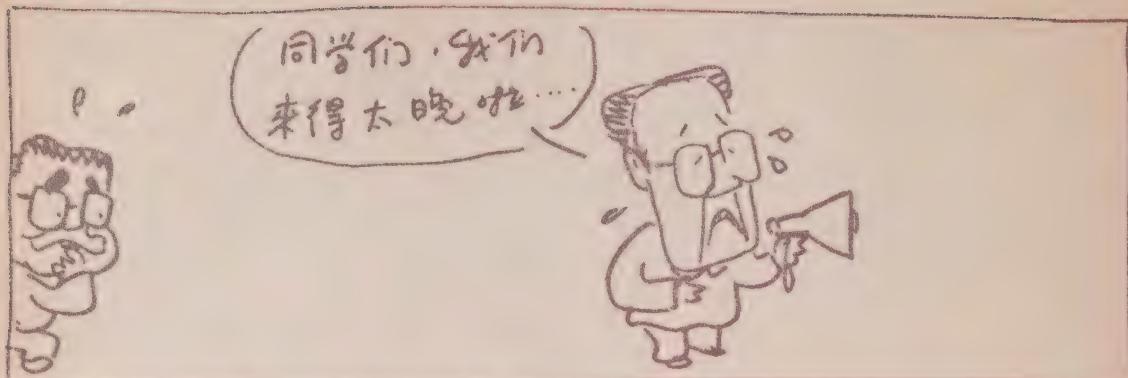 同学们，我们
来得太晚啦……